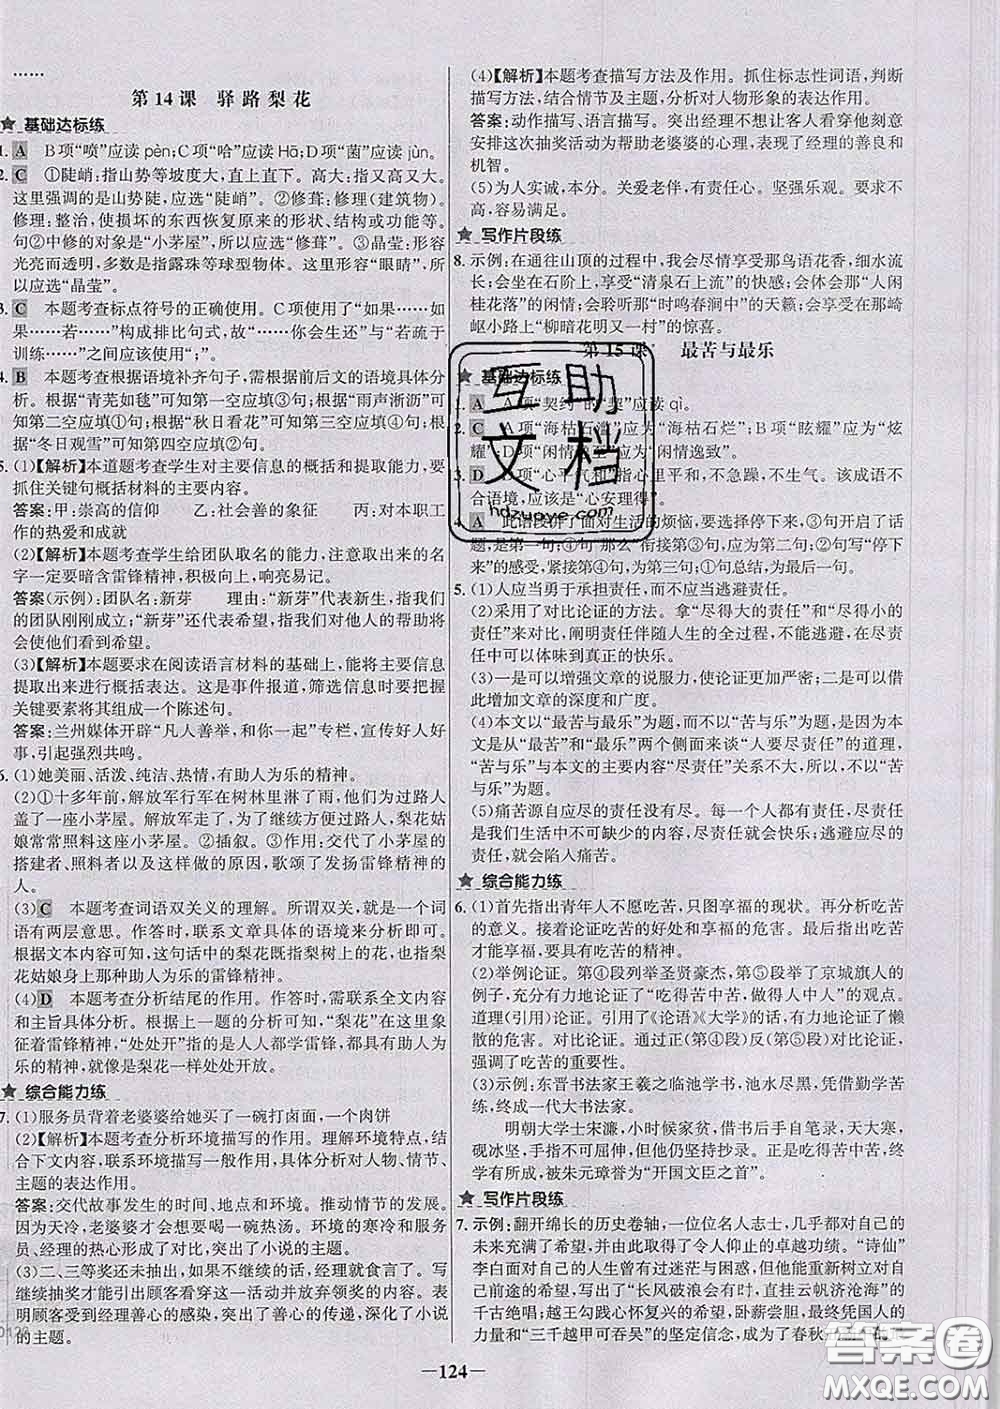 ……
第14课　驿路梨花
基础达标练
1. A　B项“喷”应读pèn；C项“哈”应读Hā；D项“菌”应读jùn。
2. C　①陡峭：指山势等坡度大，直上直下。高大：指又高又大。
这里强调的是山势陡，应选“陡峭”。②修葺：修理（建筑物）。
修理：整治，使损坏的东西恢复原来的形状、结构或功能等。
句②中修的对象是“小茅屋”，所以应选“修葺”。③晶莹：形容
光亮而透明，多数是指露珠等球型物体。这里形容“眼睛”，所
以应选“晶莹”。
3. C　本题考查标点符号的正确使用。C项使用了“如果……
如果……若……”构成排比句式，故“……你会生还”与“若疏于
训练……”之间应该使用“；”。
4. B　本题考查根据语境补齐句子，需根据前后文的语境具体分
析。根据“青芜如毯”可知第一空应填①句；根据“雨声淅沥”可
知第二空应填④句；根据“秋日看花”可知第三空应填③句；根
据“冬日观雪”可知第四空应填②句。
5. (1)【解析】本道题考查学生对主要信息的概括和提取能力，要
抓住关键句概括材料的主要内容。
答案：甲：崇高的信仰　　乙：社会善的象征　　丙：对本职工
作的热爱和成就
(2)【解析】本题考查学生给团队取名的能力，注意取出来的名
字一定要暗含雷锋精神，积极向上，响亮易记。
答案（示例）：团队名：新芽　　理由：“新芽”代表新生，指我们
的团队刚刚成立；“新芽”还代表希望，指我们对他人的帮助将
会使他们看到希望。
(3)【解析】本题要求在阅读语言材料的基础上，能将主要信息
提取出来进行概括表达。这是事件报道，筛选信息时要把握
关键要素将其组成一个陈述句。
答案：兰州媒体开辟“凡人善举，和你有约”专栏，宣传好人好
事，引起强烈共鸣。
6. (1)她美丽、活泼、纯洁、热情，有助人为乐的精神。
(2)①十多年前，解放军行军在树林里淋了雨，他们为过路人
盖了一座小茅屋。解放军走了，为了继续方便过路人，梨花姑
娘常常照料这座小茅屋。②插叙。③作用：交代了小茅屋的
搭建者、照料者以及这样做的原因，歌颂了发扬雷锋精神的
人。
(3) C　本题考查词语双关义的理解。所谓双关，就是一个词
语有两层意思。作答时，联系文章具体的语境来分析即可。
根据文本内容可知，这句话中的梨花既指梨树上的花，也指梨
花姑娘身上那种助人为乐的雷锋精神。
(4) D　本题考查分析结尾的作用。作答时，需联系全文内容
和主旨具体分析。根据上一题的分析可知，“梨花”在这里象
征着雷锋精神，“处处开”指的是人人都学雷锋，都具有助人为
乐的精神，就像是梨花一样处处开放。
综合能力练
7. (1)服务员背着老婆婆给她买了一碗打卤面，一个肉饼
(2)【解析】本题考查分析环境描写的作用。理解环境特点，结
合下文内容，联系环境描写一般作用，具体分析对人物、情节、
主题的表达作用。
答案：交代故事发生的时间、地点和环境。推动情节的发展。
因为天冷，老婆婆才会想喝碗热汤。环境的寒冷和服务
员、经理的热心形成了对比，突出了小说的主题。
(3)二、三等奖还未抽出，如果不继续的话，经理就食言了。写
继续抽奖才能引出顾客穿这一活动并放弃领奖的内容。表
明顾客出受到经理善心的感染，突出了善心的传递，深化了小说
的主题。
(4)【解析】本题考查描写方法及作用。抓住标志性词语，判断
描写方法，结合情节及主题，分析对人物形象的表达作用。
答案：动作描写、语言描写。突出经理不想让客人看穿他刻意
安排这次抽奖活动为帮助老婆婆的心理，表现了经理的善良和
机智。
(5)为人实诚，本分。关爱老伴，有责任心。坚强乐观。要求不
高，容易满足。
写作片段练
8. 示例：在通往山顶的过程中，我会尽情享受那鸟语花香，细水流
长；会坐在石阶上，享受“清泉石上流”的怡然自得；会享受“人闲
桂花落”的闲情；会聆听那“时鸣春涧中”的天籁；会享受在那崎
岖小路上“柳暗花明又一村”的惊喜。
第15课　最苦与最乐
基础达标练
1. A　A项“契约”的“契”应读qì。
2. C　A项“海枯石溜”应为“海枯石烂”；B项“眩耀”应为“炫
耀”；D项“闲情逸至”应为“闲情逸致”。
3. D　D项“心平气和”指心里平和，不急躁，不生气。该成语不
合语境，应该是“心安理得”。
4. A　此语段讲了面对生活的烦恼，要选择停下来，③句开启了话
题，是第一句；④句“那么”衔接第③句，应为第二句；②句写“停下
来”的感受，紧接第④句，为第三句；①句总结，为最后一句。
5. (1)人应当勇于承担责任，而不应当逃避责任。
(2)采用了对比论证的方法。拿“尽得大的责任”和“尽得小的
责任”来对比，阐明责任伴随人生的全过程，不能逃避，在尽责任
中可以体味到真正的快乐。
(3)一是可以增强文章的说服力，使论证更加严密；二是可以借
此增加文章的深度和广度。
(4)本文以“最苦与最乐”为题，而不以“苦与乐”为题，是因为本
文是从“最苦”和“最乐”两个侧面来谈“人要尽责任”的道理，
“苦与乐”与本文的主要内容“尽责任”关系不大，所以，不以“苦
与乐”为题。
(5)痛苦源自应尽的责任没有尽。每一个人都有责任，责任也
是我们生活中不可缺少的内容，尽责任就会快乐；逃避应尽的责
任，就会陷人痛苦。
综合能力练
6. (1)首先指出青年人不愿吃苦，只图享福的现状。再分析吃苦
的意义。接着论证吃苦的好处和享福的危害。最后指出吃苦
才能享福，要具有吃苦的精神。
(2)举例论证。第④段列举圣贤豪杰、第⑤段举了京城旗人的
例子，充分有力地论证了“吃得苦中苦，做得人中人”的观点。
道理（引用）论证。引用了《论语》《大学》的话，有力地论证了懒
散的危害。对比论证。通过正（第④段）反（第⑤段）对比，突出
强调了吃苦的重要性。
(3)示例：东晋书法家王羲之临池学书，池水尽黑，凭借勤学苦
练，终成一代大书法家。
明朝大学士宋濂，小时候家贫，借书后手自笔录，天大寒，
砚冰坚，手指不可屈伸，但他仍坚持抄录。吃得苦中苦，终成大
学问，被朱元璋誉为“开国文臣之首”。
写作片段练
7. 示例：翻开绵长的历史卷轴，一位位名人志士，几乎都对自己的
未来充满了希望，并由此取得了令人仰止的卓越功绩。“诗仙”
李白面对自己的人生曾有过迷茫与困惑，但他能重新树立对自
己前途的希望，写出了“长风破浪会有时，直挂云帆济沧海”的
千古绝唱；越王勾践心怀复兴的希望，卧薪尝胆，最终凭国人的
力量和“三千越甲可吞吴”的坚定信念，成为了春秋
—124—
互助
文档
hdzuoye.com
答案圈
MXQE.COM